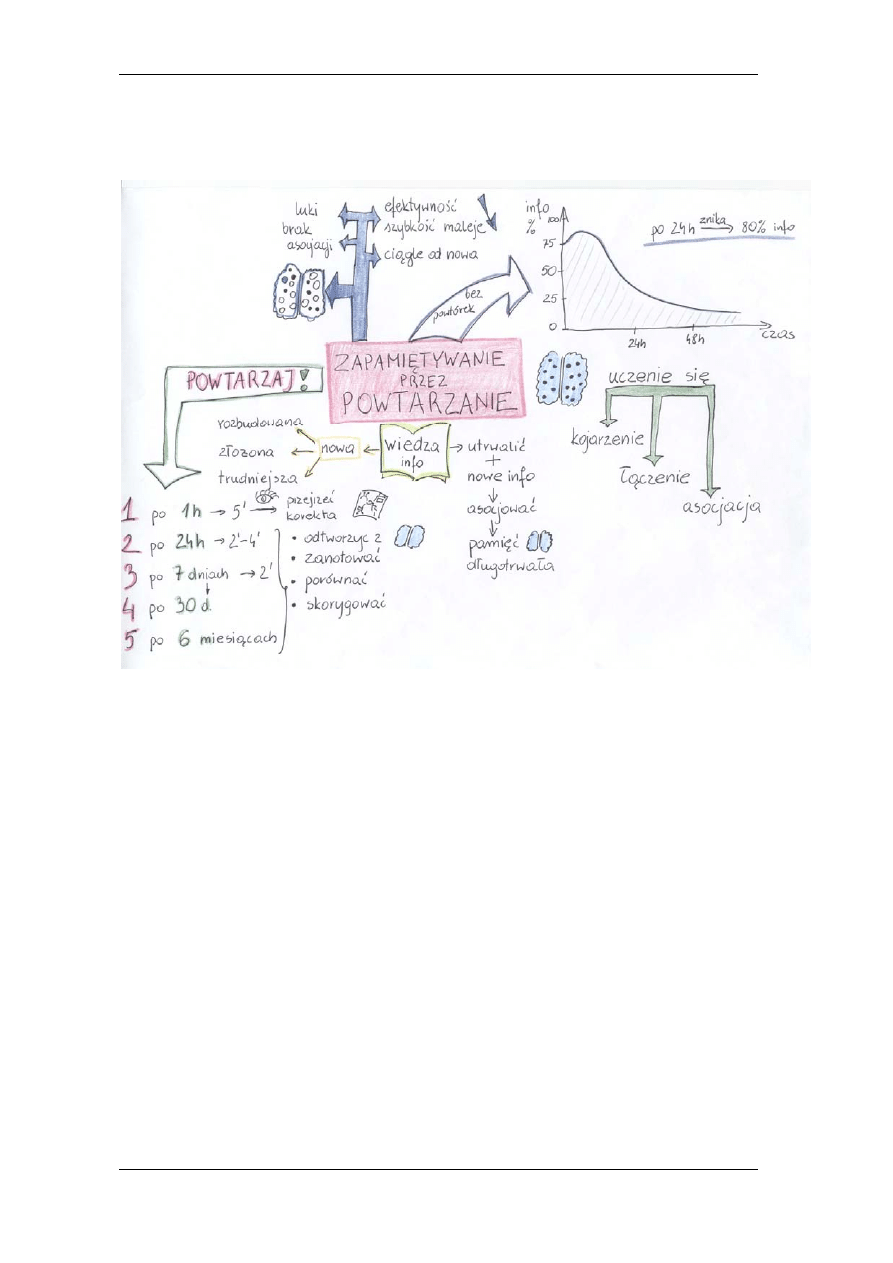 luki
brak
asocjacji
efektywność
szybkość maleje
ciągle od nowa
bez
powtórek
info
%
100
75
50
25
0
24h
48h
czas
po 24h znika 80% info
ZAPAMIĘTYWANIE
PRZEZ
POWTARZANIE
POWTARZAJ!
uczenie się
kojarzenie
łączenie
asocjacja
rozbudowana
złożona
trudniejsza
nowa
wiedza
info
utrwalić
+
nowe info
asocjować
pamięć
długotrwała
1 po 1h → 5' → przejrzeć
korekta
2 po 24h → 2'-4'
3 po 7 dniach → 2'
4 po 30 d.
5 po 6 miesiącach
• odtworzyc z
• zanotować
• porównać
• skorygować